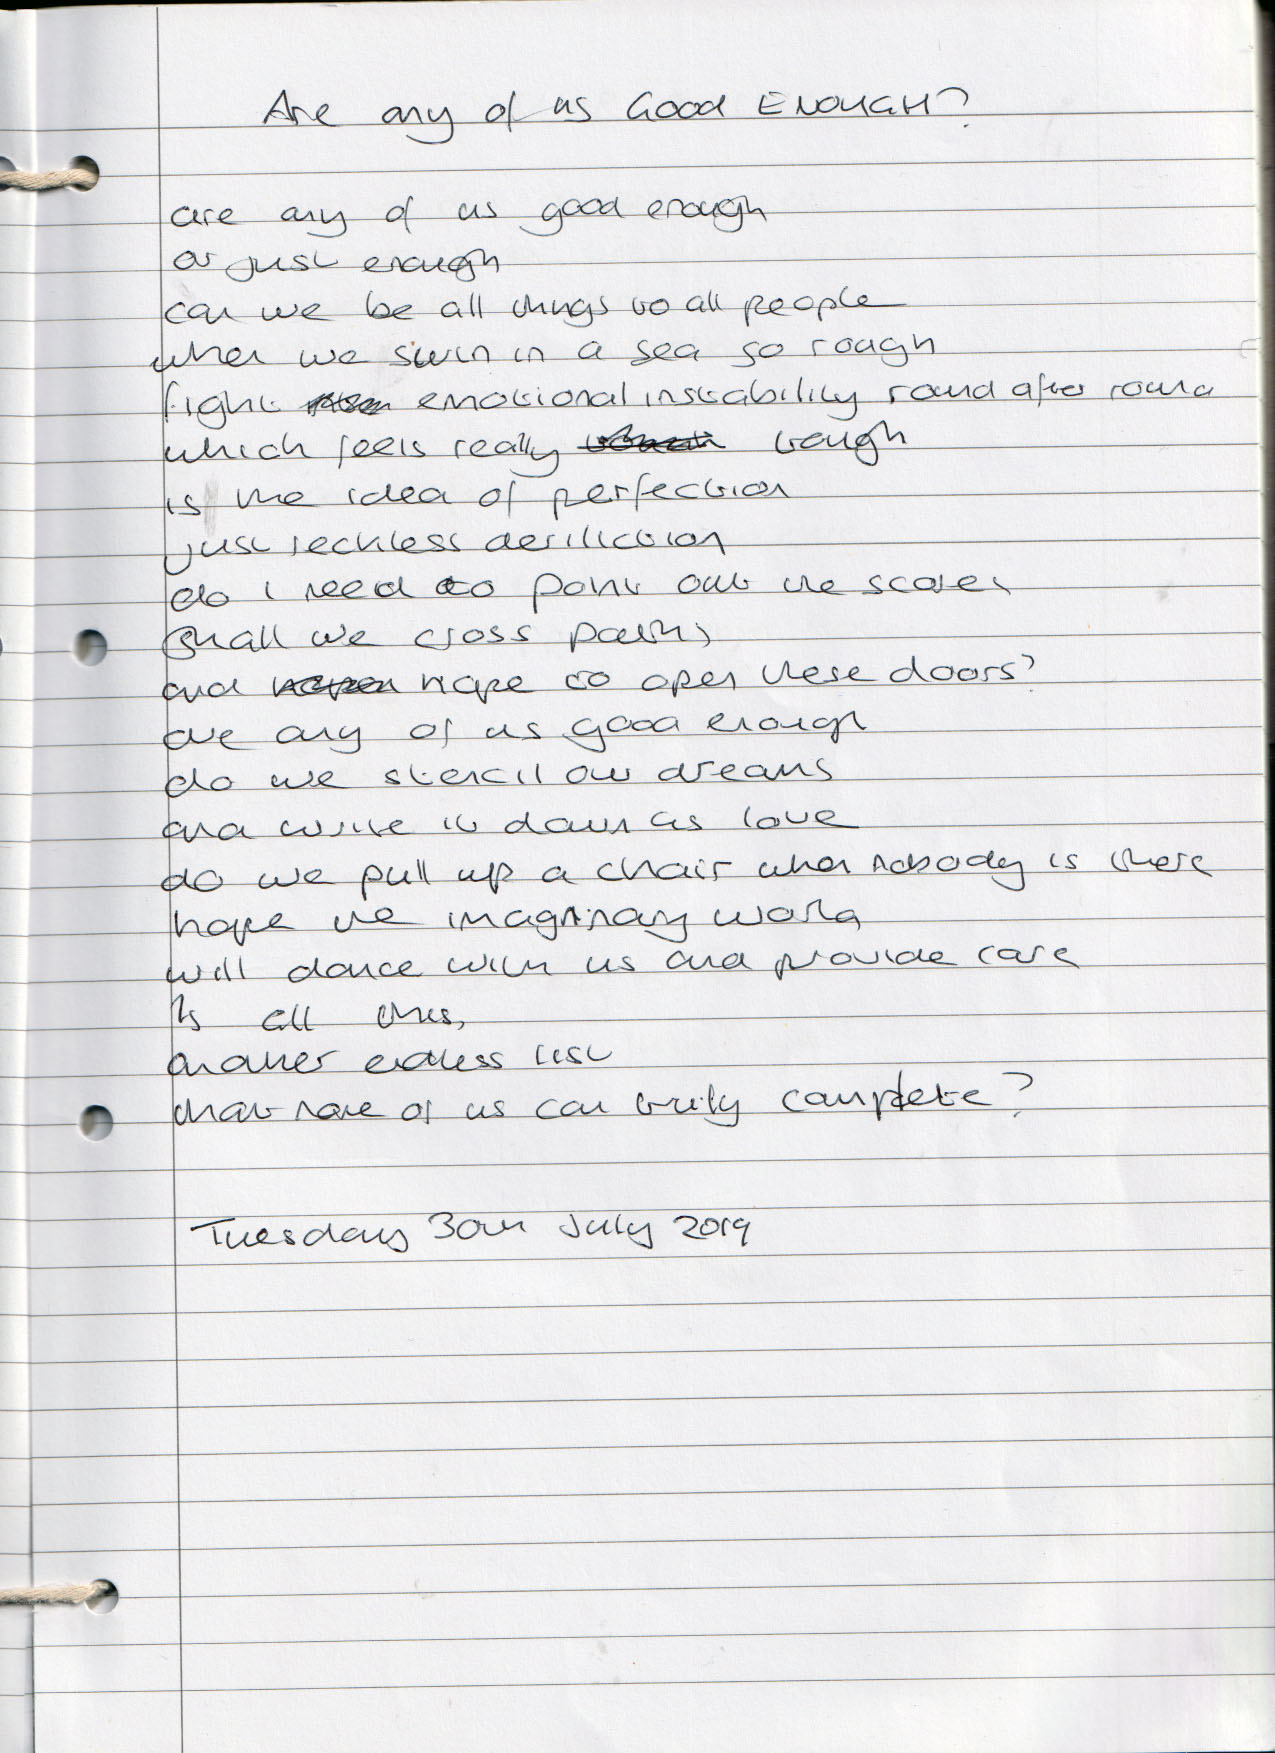 Are any of us Good ENOUGH?
are any of us good enough
or just enough
can we be all things to all people
when we swim in a sea so rough
fight emotional instability round after round
which feels really tough
is the idea of perfection
just reckless deriliction
do i need to point out the scores
shall we cross paths
and hope to open these doors?
are any of us good enough
do we stencil our dreams
and write it down as love
do we pull up a chair when nobody is there
hope the imaginary world
will dance with us and provide care
Is all this,
another endless list
that none of us can truly complete?
Tuesday 30th July 2019